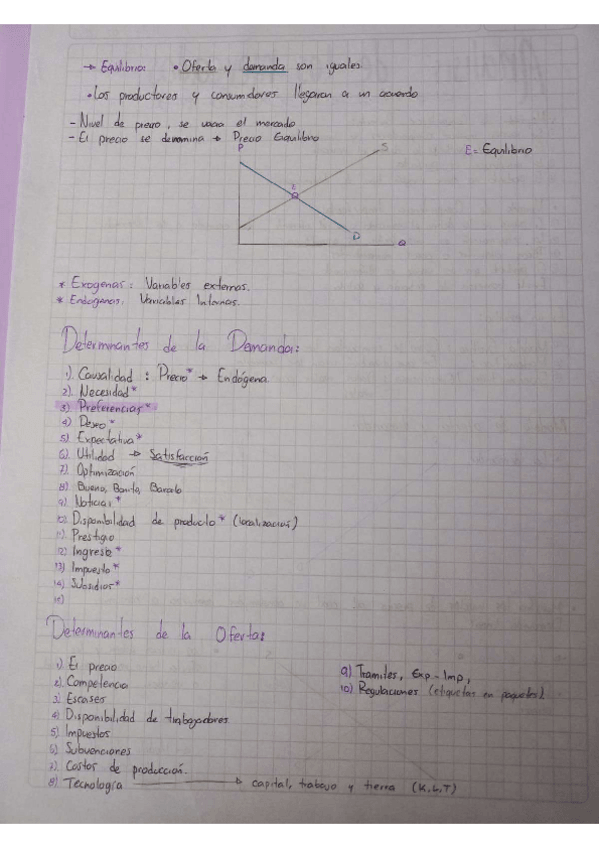 → Equilibrio: • Oferta y demanda son iguales.
• Los productores y consumidores llegaran a un acuerdo
- Nivel de precio, se vacia el mercado
- El precio se denomina → Precio Equilibro
P
S
E = Equilibrio
E
D
Q
* Exogenas: Variables externas.
* Endogenas: Variables Internas.
Determinantes de la Demanda:
1). Causalidad : Precio* → Endógena
2). Necesidad*
3) Preferencias*
4) Deseo*
5) Expectativa*
6) Utilidad → Satisfacción
7) Optimización
8) Bueno, Bonito, Barato
9) Noticias*
10) Disponibilidad de producto* (localización)
11) Prestigio
12) Ingreso*
13) Impuesto*
14) Subsidios*
15)
Determinantes de la Oferta:
1) El precio
2) Competencia
3) Escases
4) Disponibilidad de trabajadores
5) Impuestos
6) Subvenciones
7) Costos de producción.
8) Tecnología → capital, trabajo y tierra (K,L,T)
9) Tramites, Exp - Imp,
10) Regulaciones (etiquetas en paquetes)